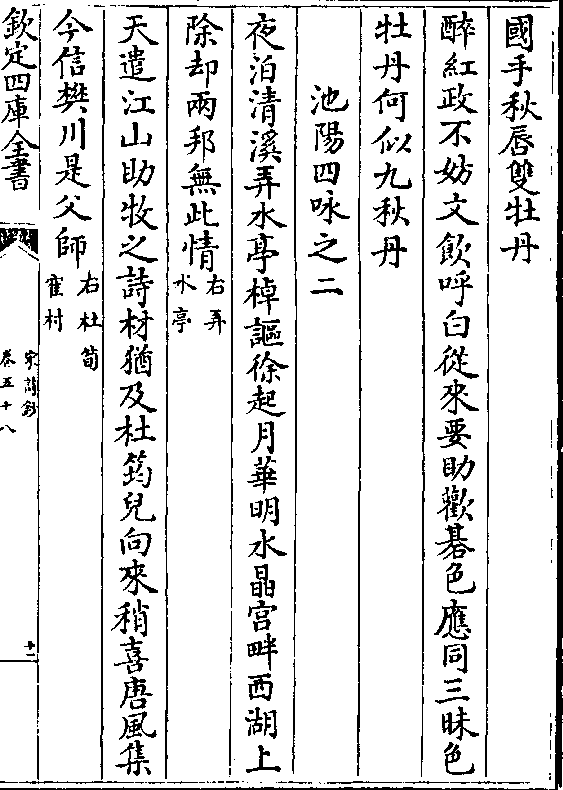 國手秋唇雙牡丹
醉紅政不妨文飲呼白從來要助歡碁色應同三昧色
牡丹何似九秋丹
池陽四咏之二
夜泊清溪弄水亭棹謳徐起月華明水晶宫畔西湖上
除却兩邦無此情
右弄
水亭
天遣江山助牧之詩材猶及杜筠兒向來稍喜唐風集
今信樊川是父師
右杜筍
隺村
欽定四庫全書
宋詩鈔
卷五十八
十一